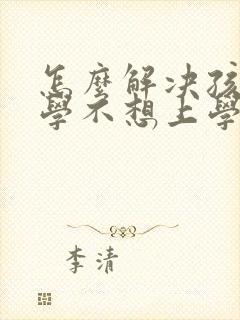 怎麼解決孩
學不想上學
李清